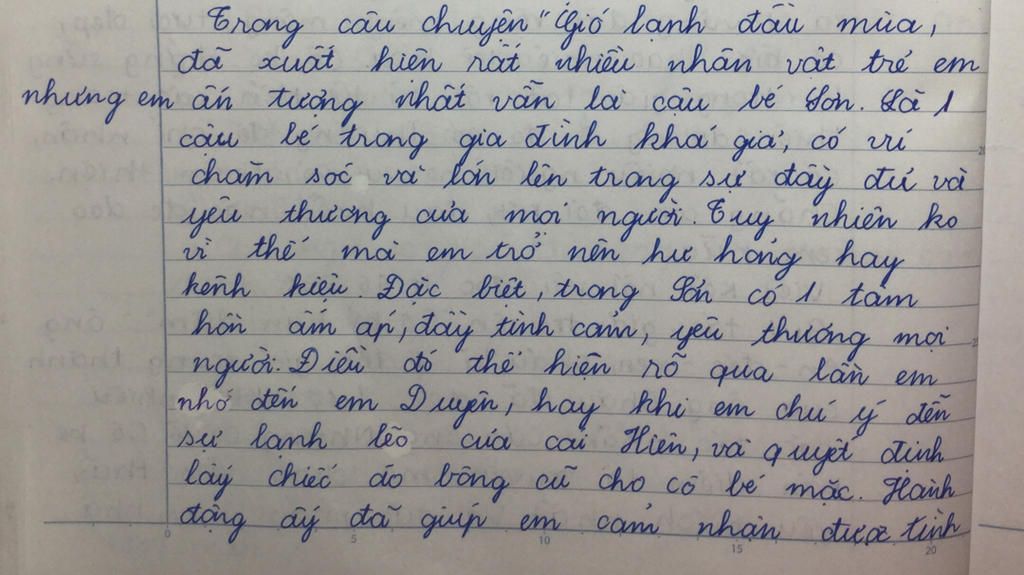 Trong câu chuyện "Gió lạnh đầu mùa,
đã xuất hiện rất nhiều nhân vật trẻ em
nhưng em ấn tượng nhất vẫn là cậu bé Sơn. Là 1
cậu bé trong gia đình khá giả, có vú
chăm sóc và lớn lên trong sự đầy đủ và
yêu thương của mọi người. Tuy nhiên ko
vì thế mà em trở nên hư hỏng hay
kênh kiệu. Đặc biệt, trong Sơn có 1 tâm
hồn ấm áp, đầy tình cảm, yêu thương mọi
người. Điều đó thể hiện rõ qua lần em
nhớ đến em Duyên, hay khi em chú ý đến
sự lạnh lẽo của cái Hiên, và quyết định
lấy chiếc áo bông cũ cho cô bé mặc. Hành
động ấy đã giúp em cảm nhận được tình
0 5 10 15 20